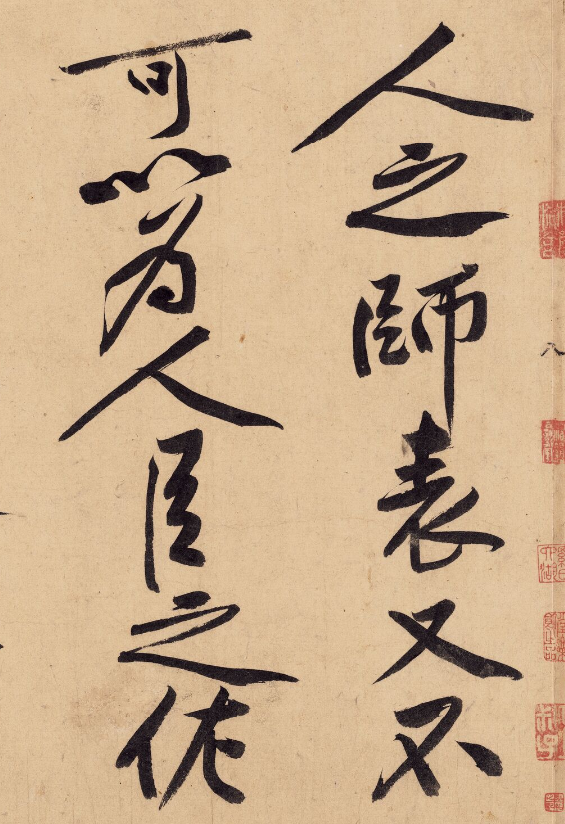 人之師表又不
可以為人臣之佐